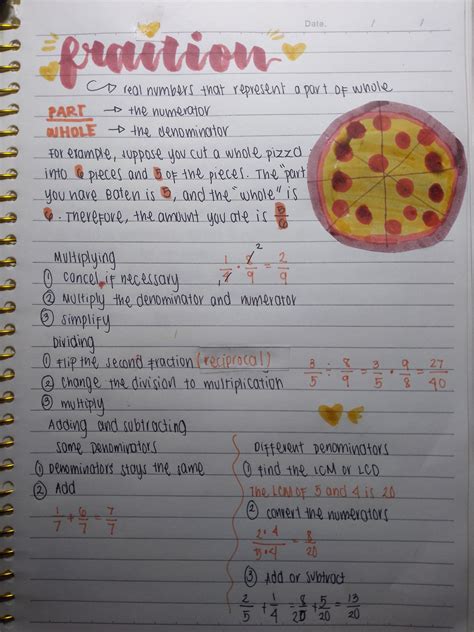 Date. / /
fraction
real numbers that represent a part of whole
PART → the numerator
WHOLE → the denominator
For example, suppose you cut a whole pizza
into 6 pieces and 5 of the pieces. The "part
you have eaten is 5, and the "whole" is
6. Therefore, the amount you ate is 5/6
Multiplying
① Cancel if necessary
② Multiply the denominator and numerator
③ Simplify
2
2/9
Dividing
① Flip the second fraction (reciprocal)
② Change the division to multiplication
③ multiply
3/5 ÷ 8/9 = 3/5 · 9/8 = 27/40
Adding and subtracting
Same Denominators
① Denominators stays the same
② Add
1/7 + 6/7 = 7/7
Different Denominators
① find the LCM or LCD
The LCM of 5 and 4 is 20
② convert the numerators
2·4/5·4 = 8/20
③ Add or subtract
2/5 + 1/4 = 8/20 + 5/20 = 13/20